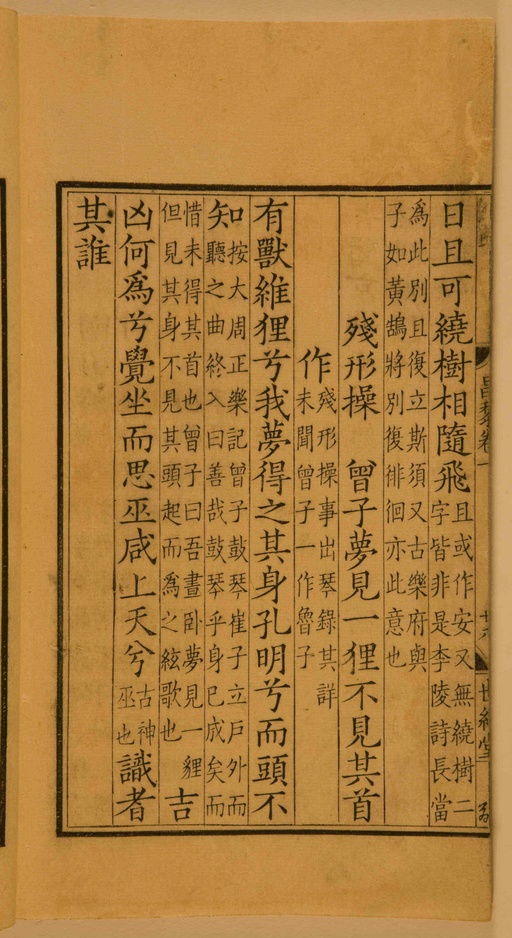 昌黎卷一
世綵堂
日且可繞樹相隨飛
且或作安又無繞樹二
字皆非是李陵詩長當
為此別且復立斯須又古樂府與
子如黃鵠將別復徘徊亦此意也
殘形操　曾子夢見一狸不見其首
作
殘形操事出琴錄其詳
未聞曾子一作魯子
有獸維狸兮我夢得之其身孔明兮而頭不
知
按大周正樂記曾子鼓琴崔子立戶外而
聽之曲終入曰善哉鼓琴乎身已成矣而
惜未得其首也曾子曰吾晝臥夢見一貍
但見其身不見其頭起而為之絃歌也
吉
凶何為兮覺坐而思巫咸上天兮
古神
巫也
識者
其誰